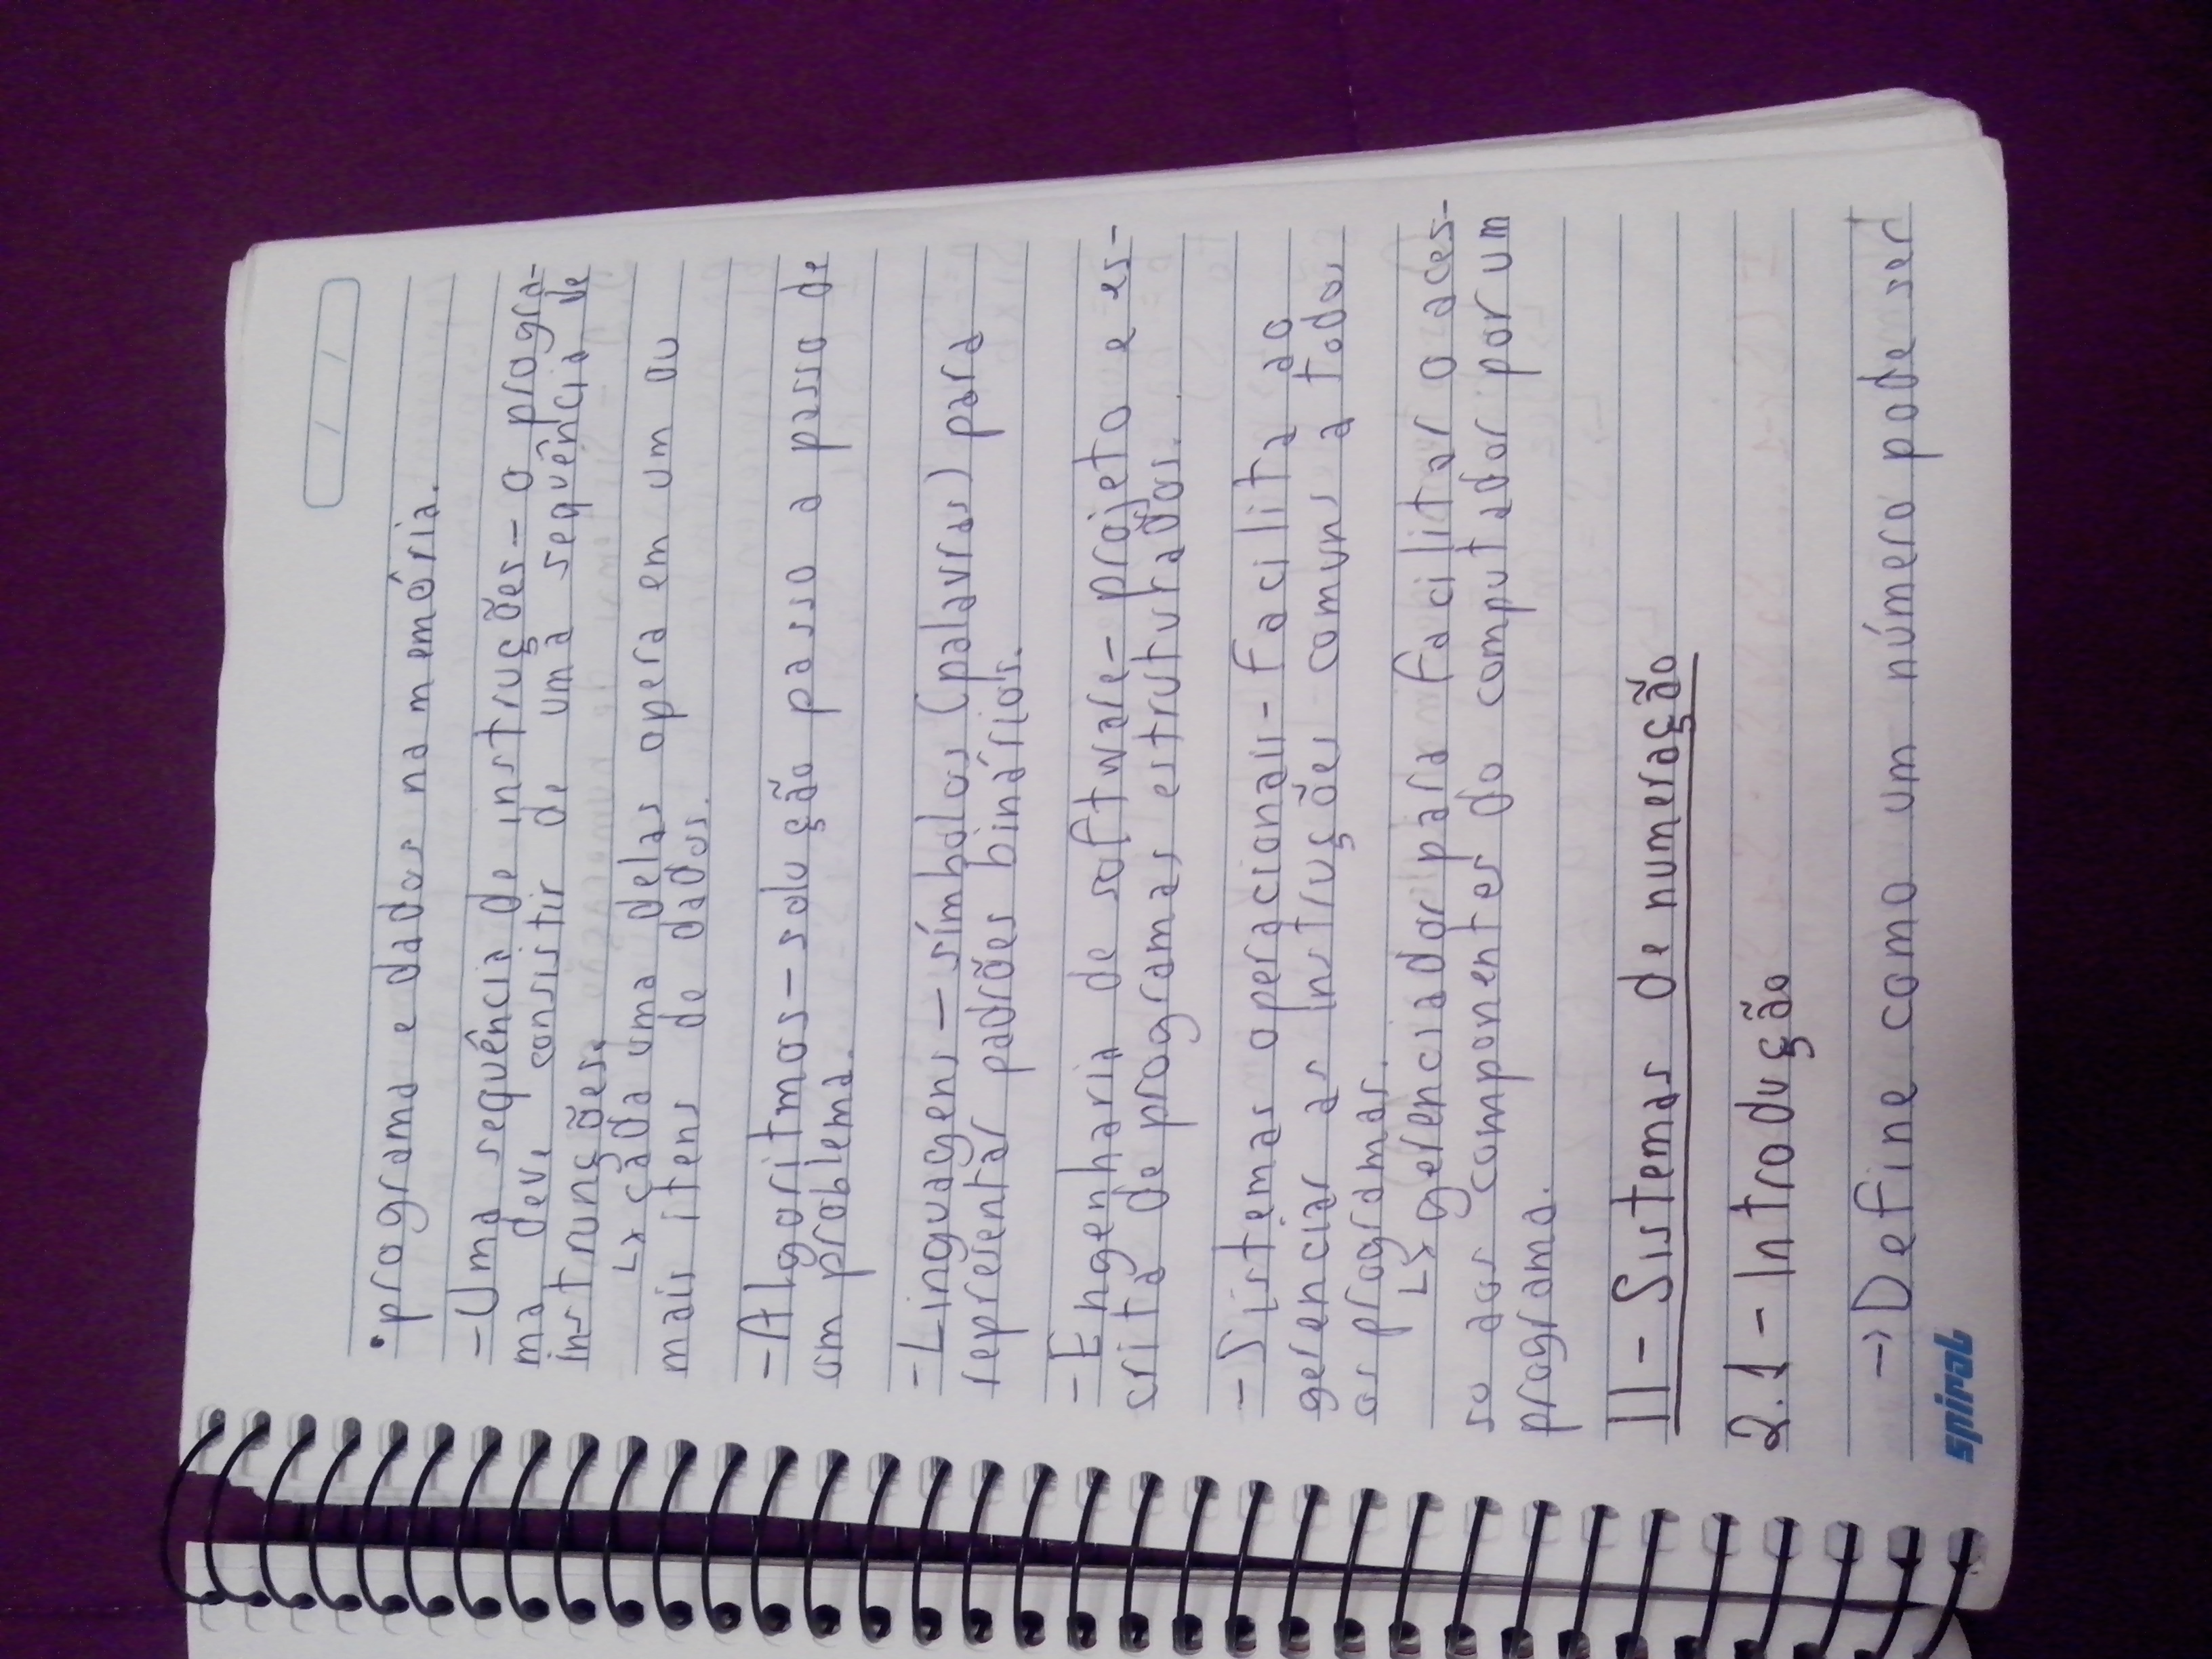 •programa e dados na memória.
-Uma sequência de instruções- o progra-
ma deve consistir de uma sequência de
instrunções.
↳ cada uma delas opera em um ou
mais itens de dados.
-Algoritmos-solução passo a passo de
um problema.
-Linguagens-símbolos (palavras) para
representar padrões binários.
-Engenharia de software- projeto e es-
crita de programas estruturados.
-Sistemas operacionais-facilita ao
gerenciar as instruções comuns a todos
os programas.
↳ gerenciador para facilitar o aces-
so aos componentes do computador por um
programa.
II- Sistemas de numeração
2.1- Introdução
→ Define como um número pode ser
spiral